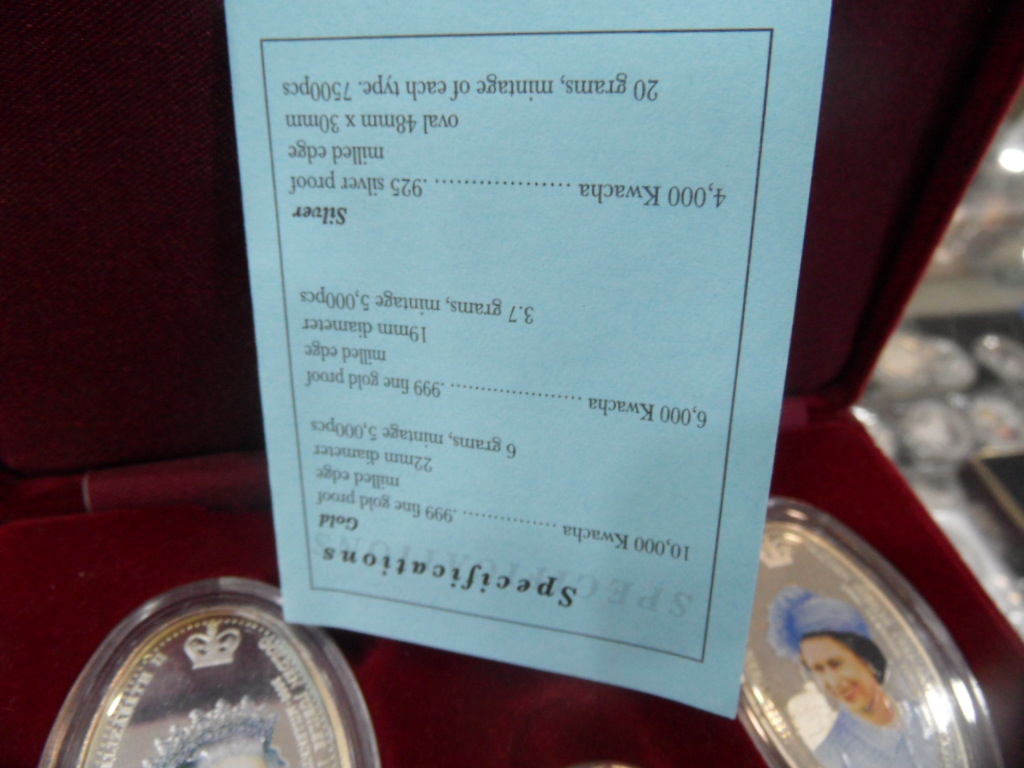 SPECIFICATIONS
Specifications
Gold
10,000 Kwacha .................. .999 fine gold proof
milled edge
22mm diameter
6 grams, mintage 5,000pcs
6,000 Kwacha .................... .999 fine gold proof
milled edge
19mm diameter
3.7 grams, mintage 5,000pcs
Silver
4,000 Kwacha .................... .925 silver proof
milled edge
oval 48mm x 30mm
20 grams, mintage of each type. 7500pcs
ELIZABETH II
GOLDEN JUBILEE